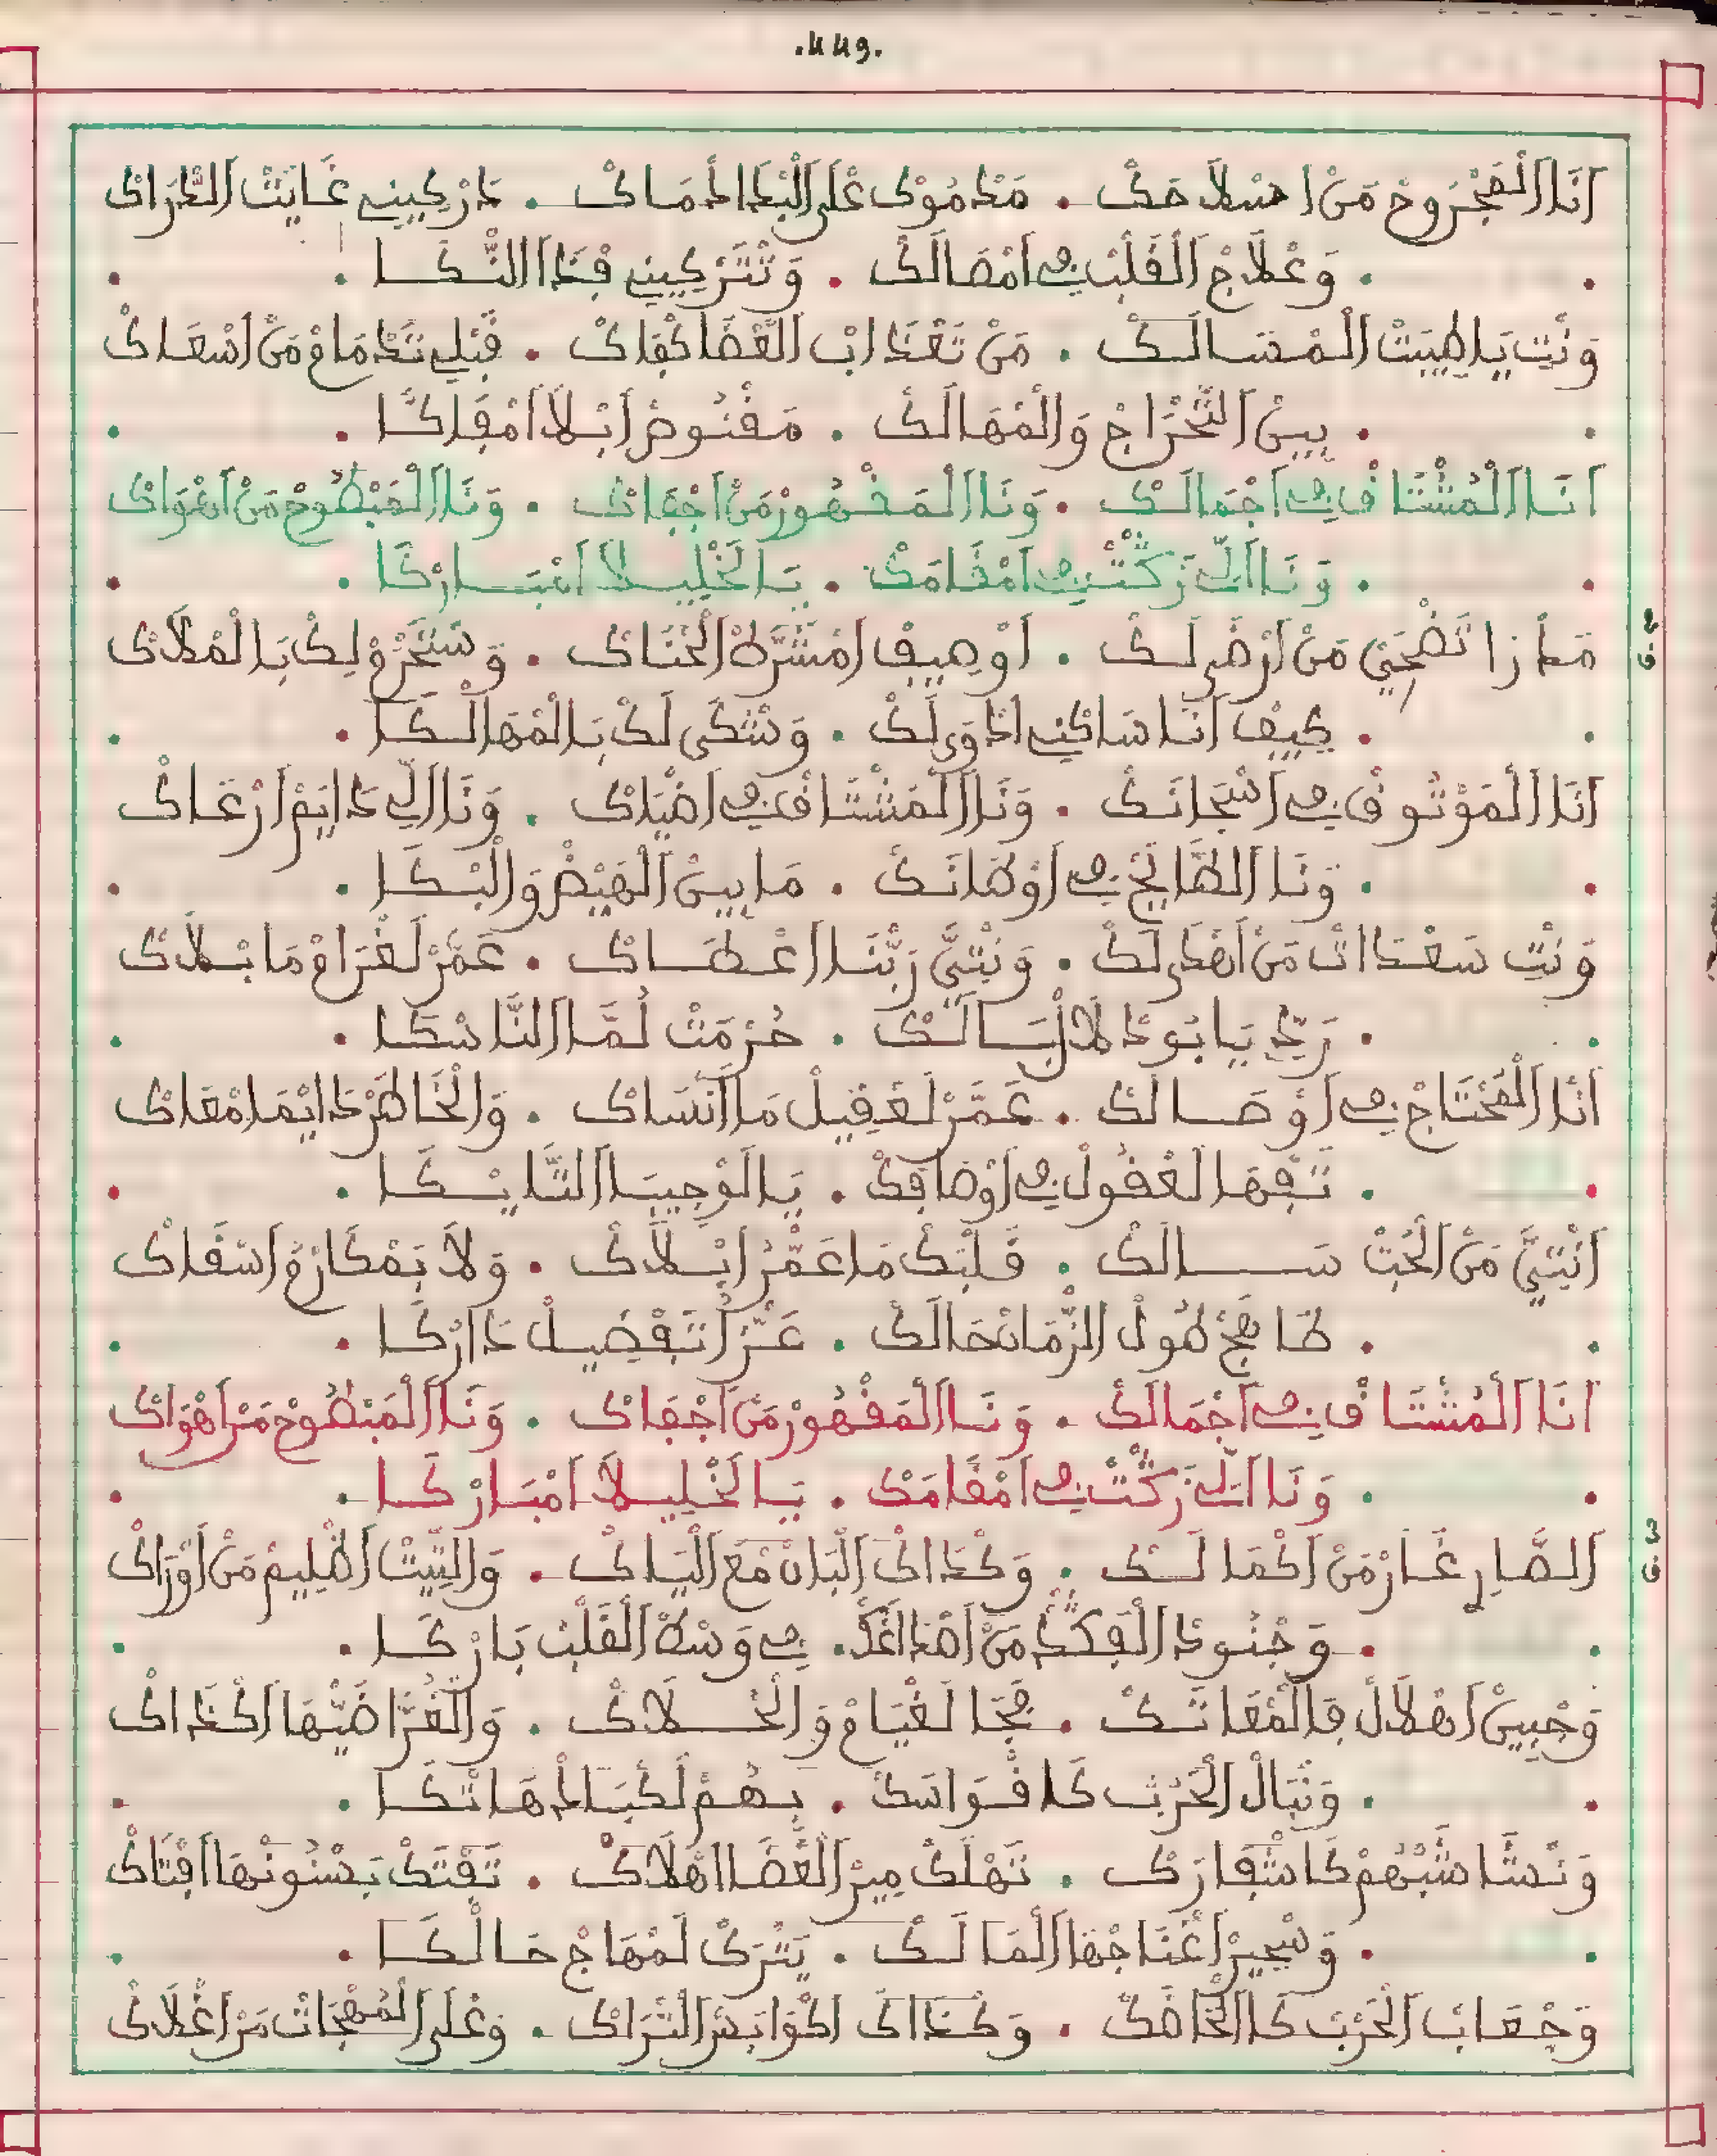 .449.
اَنَا اَلْمَجْرُوحْ مَنْ اسْلاَحَكْ . مَدْمُوكْ عْلَى اَلْبْدَا ادْمَاكْ . دَرْكِينِي غَايَتْ اَلدّْرَاكْ
. وَعْلاَجْ اَلْقَلْبْ فِي اَمْصَالَكْ . وَتْتَرْكِينِي فْدَا اَلنّْكَا .
وَنْتِ يَا طِيبَتْ اَلْمْسَالَكْ . مَنْ تَعْدَابْ اَلْعْضَا كْفَاكْ . قَبْلِي تَدْمَامْ مَنْ اَسْعَاكْ
. بِينْ اَلتّْحْرَاجْ وَالْمْهَالَكْ . مَقْنُوصْ اَبْلاَ اَمْفَاكَّا .
اَنَا اَلْمُشْتَاقْ فِي اَجْمَالَكْ . وَنَا اَلْمَقْهُورْ مَنْ اَجْفَاكْ . وَنَا اَلْمَبْطُوحْ مَنْ اَهْوَاكْ
. وَنَا اَلِّي زَرْكْتْ فِي اَمْقَامَكْ . يَا لَخْلِيلاَ اَمْبَارْكَا .
قف
مَدَازَا تَصْحِي مَنْ اَرْضَى لَكْ . اَوْصِيفْ اَمْشَرَّطْ اَلْحْنَاكْ . وَسْتَحْرُو لِكْ بَالْمْلاَكْ
. كِيفْ اَنَا سَاكْنِي ادْوَى لَكْ . وَشْكَى لَكْ بَالْمْهَالْكَا .
اَنَا اَلْمَوْثُوقْ فِي اَسْجَانَكْ . وَنَا اَلْمَشْتَاقْ فِي اَضْيَاكْ . وَنَا اَلِّي دَايَمْ اَرْعَاكْ
. وَنَا اَلطَّايَحْ فِي اَوْطَانَكْ . مَا بِينْ اَلْهَيْضْ وَالْبْكَا .
وَنْتِ سَعْدَاتْ مَنْ اَهْدَى لَكْ . وَنْتِيَّ رَبّْنَا اَعْطَاكْ . عَمَّرْ لَغْرَامْ مَا بْلاَكْ
. رَدِّي يَا بُودْلاَلْ بَالَكْ . حُرْمَتْ لُمَّا اَلنَّاسْكَا .
اَنَا اَلْمَحْتَاجْ فِي اَوْصَالَكْ . عَمَّرْ لَعْقِيلْ مَا اَنْسَاكْ . وَالْخَاطَرْ دَايْمَا مْعَاكْ
. تَبْهَا لَعْقُولْ فِي اَوْصَافَكْ . يَا لَوْجِيبَا اَلتَّايْكَا .
اَنْتِيَّ مَنْ اَلْحُبّْ سَالَكْ . قَلْبَكْ مَا عَمّْرُ اَبْلاَكْ . وَلاَ بَمْكَارْمُ اَسْقَاكْ
. طَامَحْ طُولْ اَلزّْمَانْ حَالَكْ . عَزّْ اَتَّفْضِيلْ دَارْكَا .
اَنَا اَلْمُشْتَاقْ فِي اَجْمَالَكْ . وَنَا اَلْمَقْهُورْ مَنْ اَجْفَاكْ . وَنَا اَلْمَبْطُوحْ مَنْ اَهْوَاكْ
. وَنَا اَلِّي زَرْكْتْ فِي اَمْقَامَكْ . يَا لَخْلِيلاَ اَمْبَارْكَا .
قف
اَلصَّارِي غَارْ مَنْ اَكْمَالَكْ . وَكْدَاكْ اَلْبَانْ مْعَ اَلْيَاكْ . وَالتِّيتْ اَظْلِيمْ مَنْ اَوْرَاكْ
. وَجْنُودْ اَلْفَكْدْ مَنْ اَصْدَاغَكْ . فِي وَسْطْ اَلْقَلْبْ بَارْكَا .
وَجْبِينْ اَهْلاَلْ فَالْمْعَانَكْ . فْجَا لَغْيَامْ وَالْحْلاَكْ . وَالْغُرَّا ضَيّْهَا اَكْدَاكْ
. وَنْبَالْ اَلْحَرْبْ كَا قْوَاسَكْ . بِهُمْ لَكْبَادْ هَاتْكَا .
وَنْشَا شَبّْهُمْ كَا شْفَارَكْ . تَهْلَكْ مِيرْ اَلْعْضَا اهْلاَكْ . تَفْتَكْ بَسْنُونْهَا اَفْتَاكْ
. وَسْحِيرْ اَغْنَاجْهَا اَلْمَالَكْ . يَتْرَكْ لَمْهَاجْ حَالْكَا .
وَجْعَابْ اَلْحَرْبْ كَا اَلْخَاضَكْ . وَكْدَاكْ اَكْوَابَسْ اَلْتْرَاكْ . وَعْلَى اَلْمُهْجَاتْ مَنْ اَغْلاَكْ